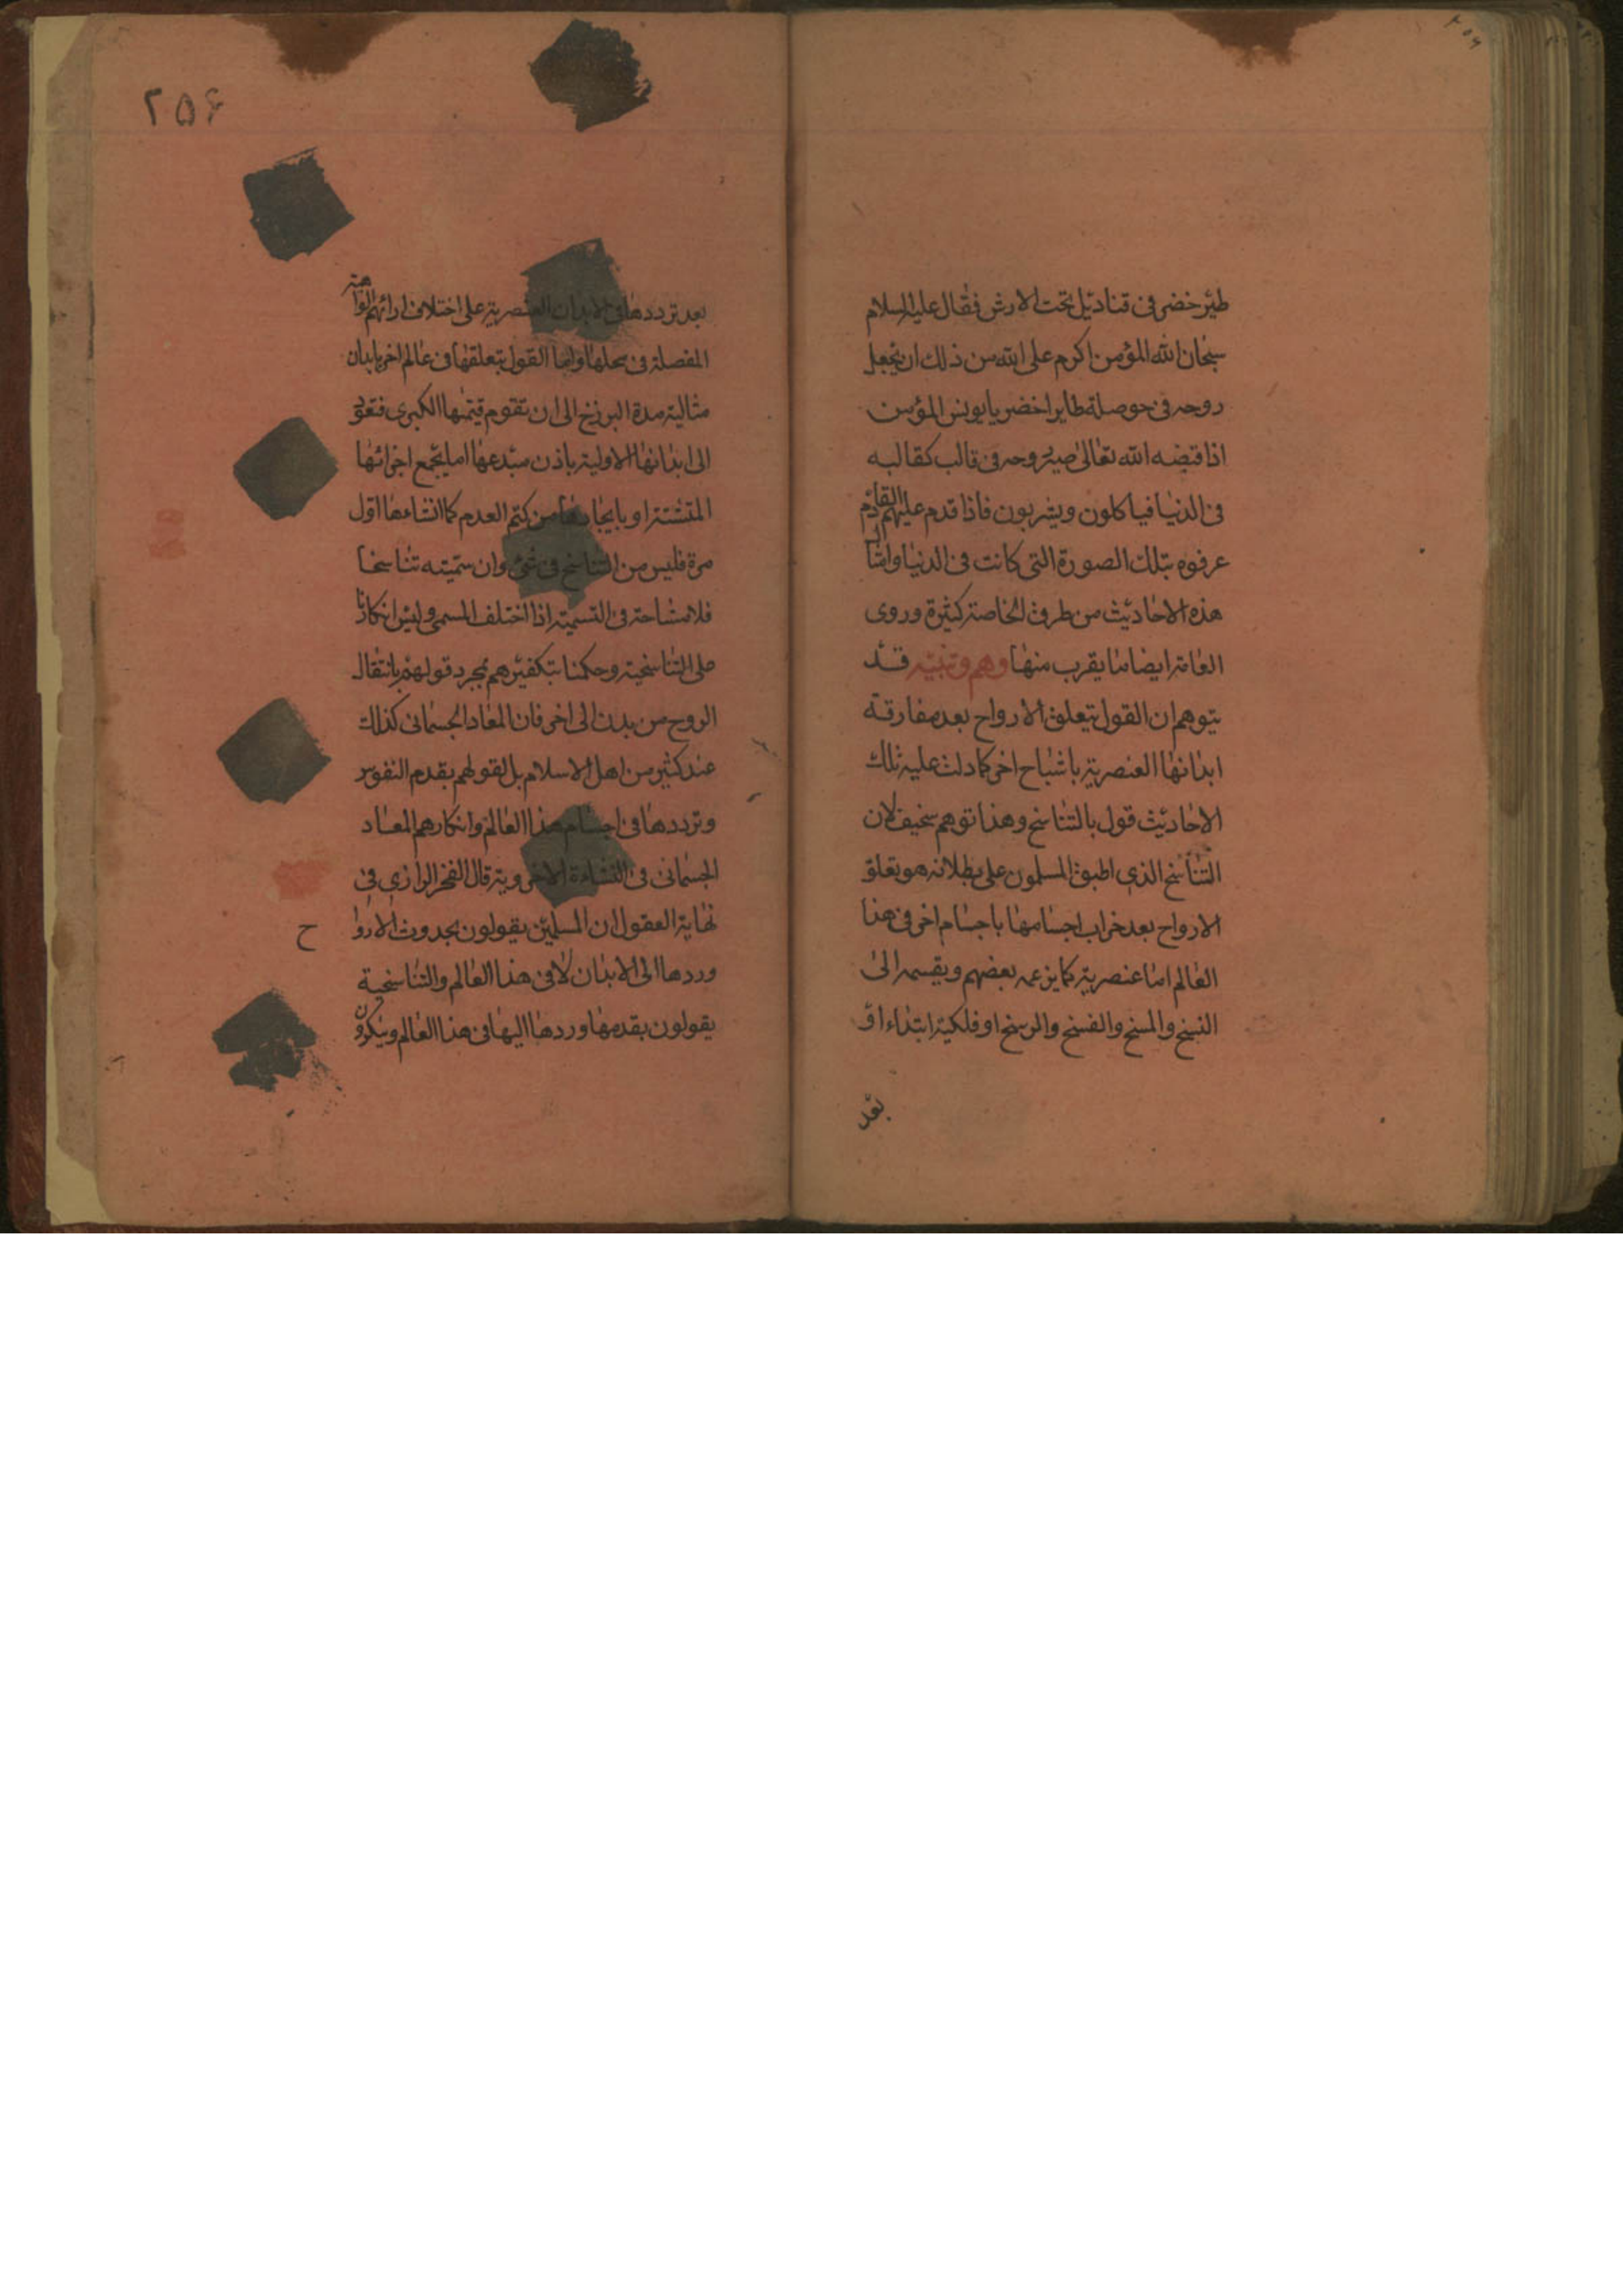 طير خضر فى قناديل تحت الارش فقال عليه السلام
سبحان الله المؤمن اكرم على الله من ذلك ان يجعل
روحه فى حوصلة طاير اخضر يا يونس المؤمن
اذا قبضه الله تعالى صير روحه فى قالب كقالبه
فى الدنيا فياكلون ويشربون فاذا قدم عليهم القادم
عرفوه بتلك الصورة التى كانت فى الدنيا وامثال
هذه الاحاديث من طرق الخاصة كثيرة وروى
العامة ايضا ما يقرب منها وهم وتنبيه قد
يتوهم ان القول بتعلق الارواح بعد مفارقة
ابدانها العنصرية باشباح اخر كما دلت عليه تلك
الاحاديث قول بالتناسخ وهذا توهم سخيف لان
التناسخ الذى اطبق المسلمون على بطلانه هو تعلق
الارواح بعد خراب اجسامها باجسام اخر فى هذا
العالم اما عنصرية كما يزعمه بعضهم ويقسمه الى
النسخ والمسخ والفسخ والرسخ او فلكية ابتداء او
بعد
٢٥۶
بعد ترددها فى الابدان العنصرية على اختلاف ارائهم الواهية
المفصلة فى محلها واما القول بتعلقها فى عالم اخر بابدان
مثالية مدة البرزخ الى ان تقوم قيمتها الكبرى فتعود
الى ابدانها الاولية باذن مبدعها اما بجمع اجزائها
المتشتتة او بايجادها من كتم العدم كما انشاءها اول
مرة فليس من التناسخ فى شئ وان سميته تناسخا
فلا مشاحة فى التسمية اذا اختلف المسمى وليس انكارنا
على التناسخية وحكمنا بتكفيرهم بمجرد قولهم بانتقال
الروح من بدن الى اخر فان المعاد الجسمانى كذلك
عند كثير من اهل الاسلام بل لقولهم بقدم النفوس
وترددها فى اجسام هذا العالم وانكارهم المعاد
الجسمانى فى النشاءة الاخروية قال الفخر الرازى فى
نهاية العقول ان المسلمين يقولون بحدوث الارواح
وردها الى الابدان لا فى هذا العالم والتناسخية
يقولون بقدمها وردها اليها فى هذا العالم وينكرون